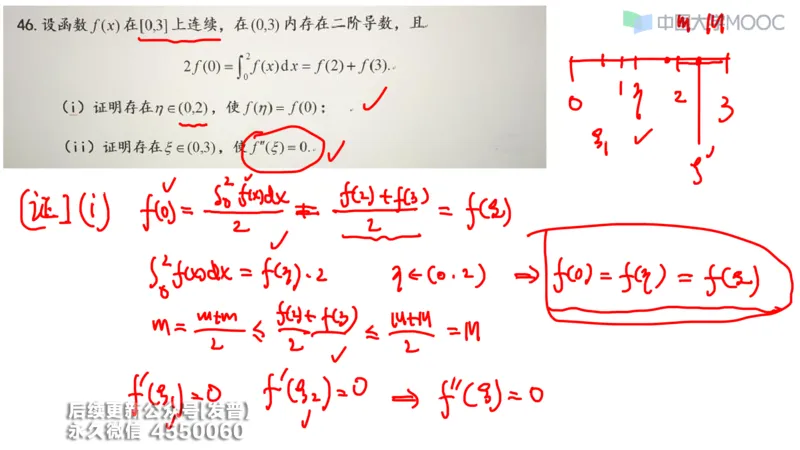 46. 设函数 f(x) 在 [0,3] 上连续，在 (0,3) 内存在二阶导数，且
2f(0)=∫₀² f(x)dx=f(2)+f(3).
（i）证明存在 η∈(0,2)，使 f(η)=f(0)；
（ii）证明存在 ξ∈(0,3)，使 f″(ξ)=0.
中国大学MOOC
m M
0 1 η 2 3
ξ₁ ✓
[证] (i) f(0) = ∫₀² f(x)dx / 2 = f(2)+f(3) / 2 = f(ξ)
∫₀² f(x)dx = f(η)·2 η∈(0·2) ⇒ f(0) = f(η) = f(ξ)
m = m+m / 2 ≤ f(2)+f(3) / 2 ≤ M+M / 2 = M
f′(ξ₁)=0 f′(ξ₂)=0 ⇒ f″(ξ)=0
后续更新公众号(发普)
永久微信 4550060